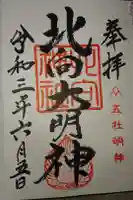 奉拝
五社明神
北向大明神
令和三年六月五日